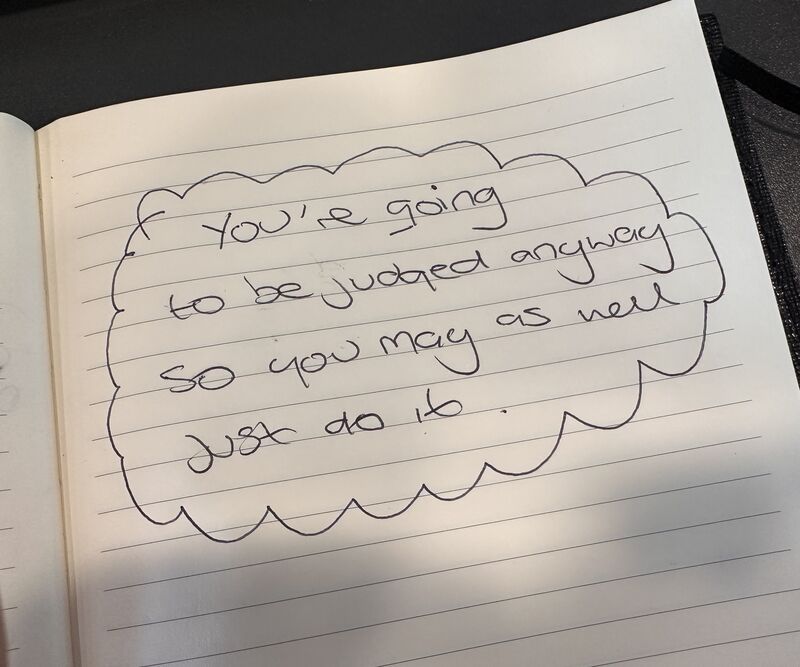 You're going
to be judged anyway
so you may as well
Just do it.